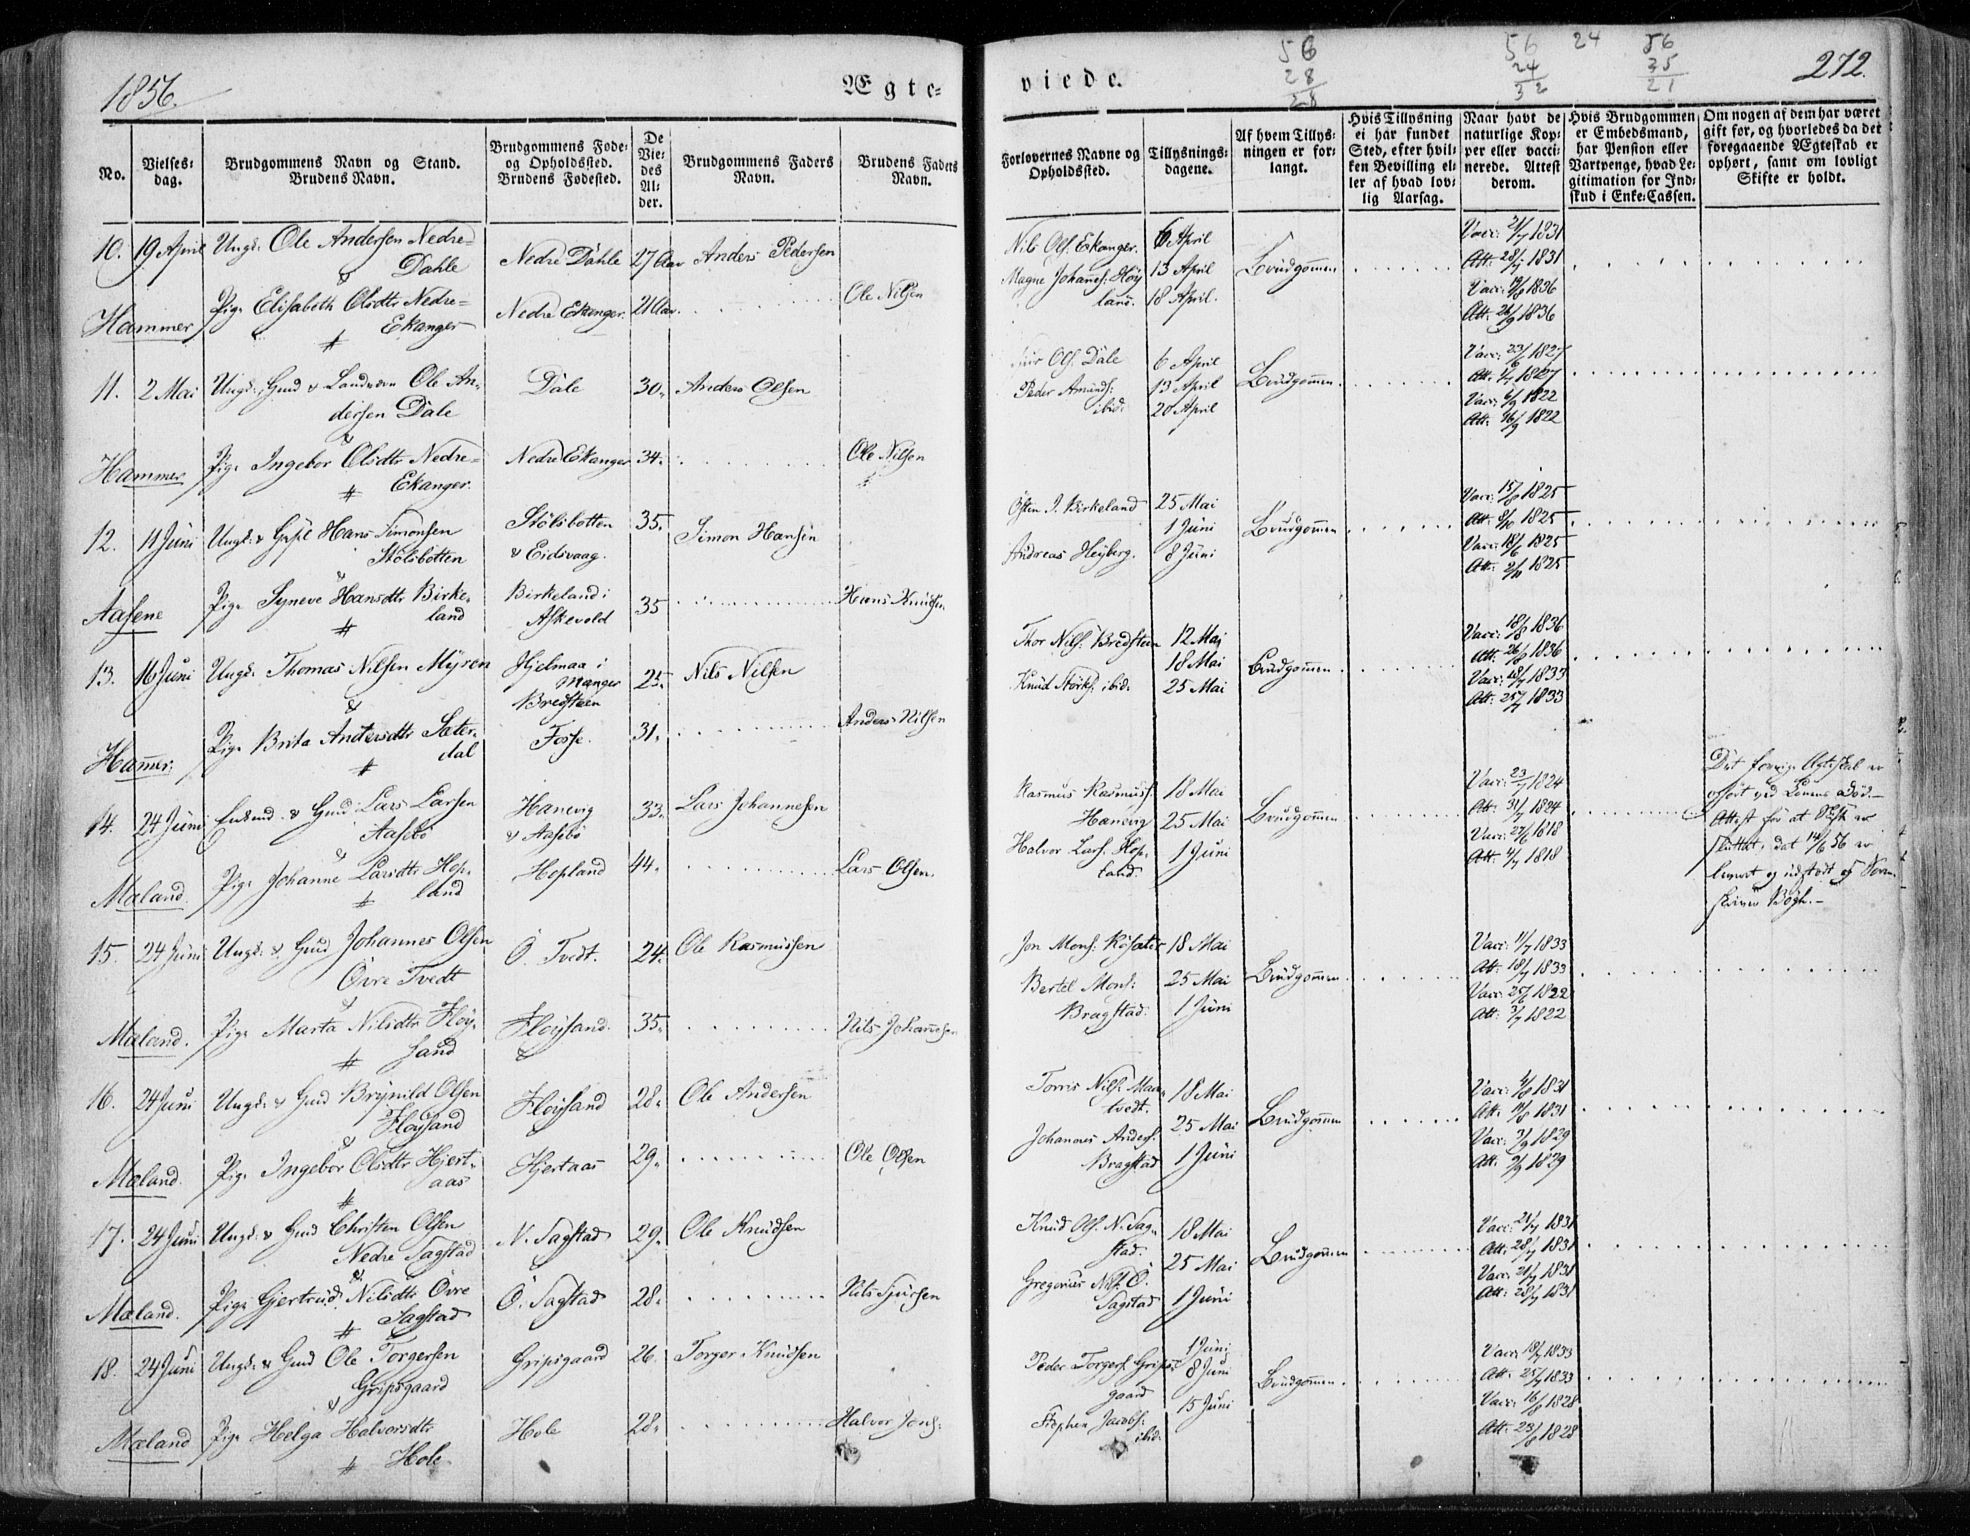 1856.
Ægte=
viede.
56
28
28
56
24
32
24
56
35
21
272.
No.
Vielses=
dag.
Brudgommens Navn og Stand.
Brudens Navn.
Brudgommens Føde=
og Opholdssted.
Brudens Fødested.
De
Vie=
des
Al=
der.
Brudgommens Faders
Navn.
Brudens Faders
Navn.
Forlovernes Navne og
Opholdssted.
Tillysnings=
dagene.
Af hvem Tillys=
ningen er for=
langt.
Hvis Tillysning
ei har fundet
Sted, efter hvil=
ken Bevilling el=
ler af hvad lov=
lig Aarsag.
Naar havt de
naturlige Kop=
per eller vacci=
nerede. Attest
derom.
Hvis Brudgommen
er Embedsmand,
har Pension eller
Vartpenge, hvad Le=
gitimation for Ind=
skud i Enke=Cassen.
Om nogen af dem har været
gift før, og hvorledes da det
foregaaende Ægteskab er
ophørt, samt om lovligt
Skifte er holdt.
10. 19 April Ungk. Ole Andersen Nedre=
Dahle
Nedre Dahle 27 Aar Anders Pedersen
Nils Ols. Ekanger. 6 April
Magne Johannes. Høy
land. 13 April
18 April.
Brudgommen
Vacc: 21/7 1831
Att: 28/7 1831
Hammer Pige Elisabeth Olsdtr Nedre=
Ekanger
Nedre Ekanger. 21 Aar. Ole Nilsen
Vacc: 19/8 1836
Att: 26/9 1836
11. 2 Mai Ungk. Gmd & Landværn Ole An=
dersen Dale
Dale 30. Anders Olsen
Ols. Dale 6 April
Peder Amunds:
ibid. 13 April
20 April
Brudgommen
Vacc: 23/6 1827
Att: 1/7 1827
Hammer Pige Ingebor Olsdtr Nedre=
Ekanger.
Nedre Ekanger 34. Ole Nilsen
Vacc: 6/9 1822
Att: 16/9 1822
12. 11 Juni Ungk. & Hans Simonsen
Stölsbotten
Stölsbotten
& Eidsvaag.
35. Simon Hansen
Östen J. Birkeland 25 Mai
1 Juni
Andreas Heyberg. 8 Juni
Brudgommen
Vacc: 15/8 1825
Att: 8/10 1825
Aasene Pige Syneve Hansdtr Birke=
land
Birkeland i
Askevold
35 Hans Knudsen
Vacc: 18/6 1825
Att: 2/10 1825
13. 16 Juni Ungk. Thomas Nilsen Myren
Hjelmaa i
Manger
Bredsteen
25. Nils Nilsen
Thor Nils. Bredsteen 12 Mai
18 Mai
Knud Störks. ibid. 25 Mai
Brudgommen
Vacc: 18/8 1836
Att: 26/8 1836
Hammer. Pige Brita Andersdtr Sæter=
dal
Fosse. 31. Anders Nilsen
Vacc: 18/7 1833
Att: 25/7 1833
14. 24 Juni Enkemd. & Gmd. Lars Larsen
Aasebö
Hanevig
& Aasebö
33. Lars Johannesen
Rasmus Rasmus.
Hanevig 18 Mai
25 Mai
Halvor Lars. Hop=
land. 1 Juni
Brudgommen
Vacc: 23/7 1824
Att: 31/7 1824
Mæland. Pige Johanne Larsdtr Hop=
land
Hopland 44. Lars Olsen.
Vacc: 27/6 1818
Att: 4/7 1818
Det forrige Ægteskab er
ophørt ved Konens Död.
Attest for at Skifte er
sluttet, dat 14/6 56 er
leveret og udstedt af Soren=
skriver Bögh.
15. 24 Juni Ungk. & Gmd Johannes Olsen
Övre Tvedt
Ö. Tvedt. 24. Ole Rasmussen
Jon Mons. Röisæter 18 Mai
Bertel Mons.
Bragstad. 25 Mai
1 Juni
Brudgommen
Vacc: 11/7 1833
Att: 18/7 1833
Mæland. Pige Marta Nilsdtr Flöy=
sand
Flöysand. 35. Nils Johannesen
Vacc: 25/6 1822
Att: 3/7 1822
16. 24 Juni Ungk. & Gmd Brynild Olsen
Flöysand
Flöysand 28. Ole Andersen
Torris Nils. Man=
tvedt. 18 Mai
25 Mai
Johannes Anders.
Bragstad 1 Juni
Brudgommen
Vacc: 4/8 1831
Att: 11/8 1831
Mæland. Pige Ingebor Olsdtr Hjert=
aas
Hjertaas 29. Ole Olsen
Vacc: 3/9 1829
Att: 9/9 1829
17. 24 Juni Ungk. & Gmd Christen Olsen
Nedre Sagstad
N. Sagstad 29. Ole Knudsen
Knud Ols. N. Sag=
stad. 18 Mai
25 Mai
Gregorius Nils. Ö.
Sagstad 1 Juni
Brudgommen
Vacc: 21/7 1831
Att: 28/7 1831
Mæland. Pige Gjertrud Nilsdtr Övre
Sagstad
Ö. Sagstad 28. Nils Sjursen
Vacc: 21/7 1831
Att: 28/7 1831
18. 24 Juni Ungk. & Gmd Ole Torgersen
Gripsgaard
Gripsgaard 26. Torger Knudsen
Peder Torgers. Grips=
gaard 1 Juni
8 Juni
15 Juni
Stephen Jacobs:
ibid.
Brudgommen
Vacc: 18/7 1833
Att: 25/7 1833
Mæland Pige Helga Halvorsdtr
Hole
Hole 28. Halvor Jons:
Vacc: 16/8 1828
Att: 23/8 1828